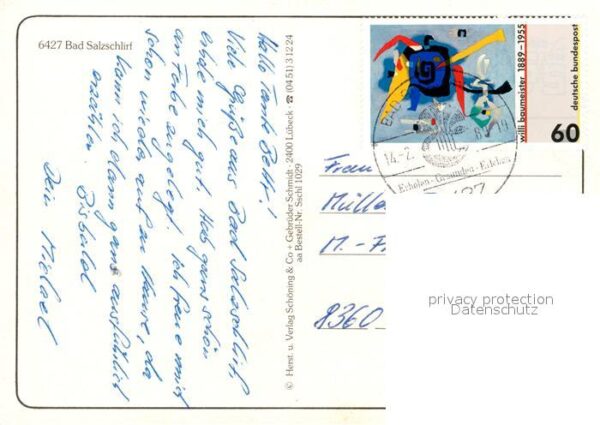 6427 Bad Salzschlirf
Hallo Tante Betti!
Viele Grüße aus Bad Salzschlirf,
erhole mich gut. Hab ganz schön
an Farbe zugelegt. Ich freue mich
schon wieder auf zu Hause, da
kann ich dann ganz ausführlich
erzählen. Bis bald
Dein Michael
© Herst. u. Verlag Schöning & Co + Gebrüder Schmidt · 2400 Lübeck · ☎ (04 51) 3 12 24
aa Bestell-Nr. Sschl 1029
willi baumeister 1889-1955
deutsche bundespost
60
BAD
14.-2.
Erholen-Gesunden-Erleben
Frau
Mülle
M.-F
8360
privacy protection
Datenschutz